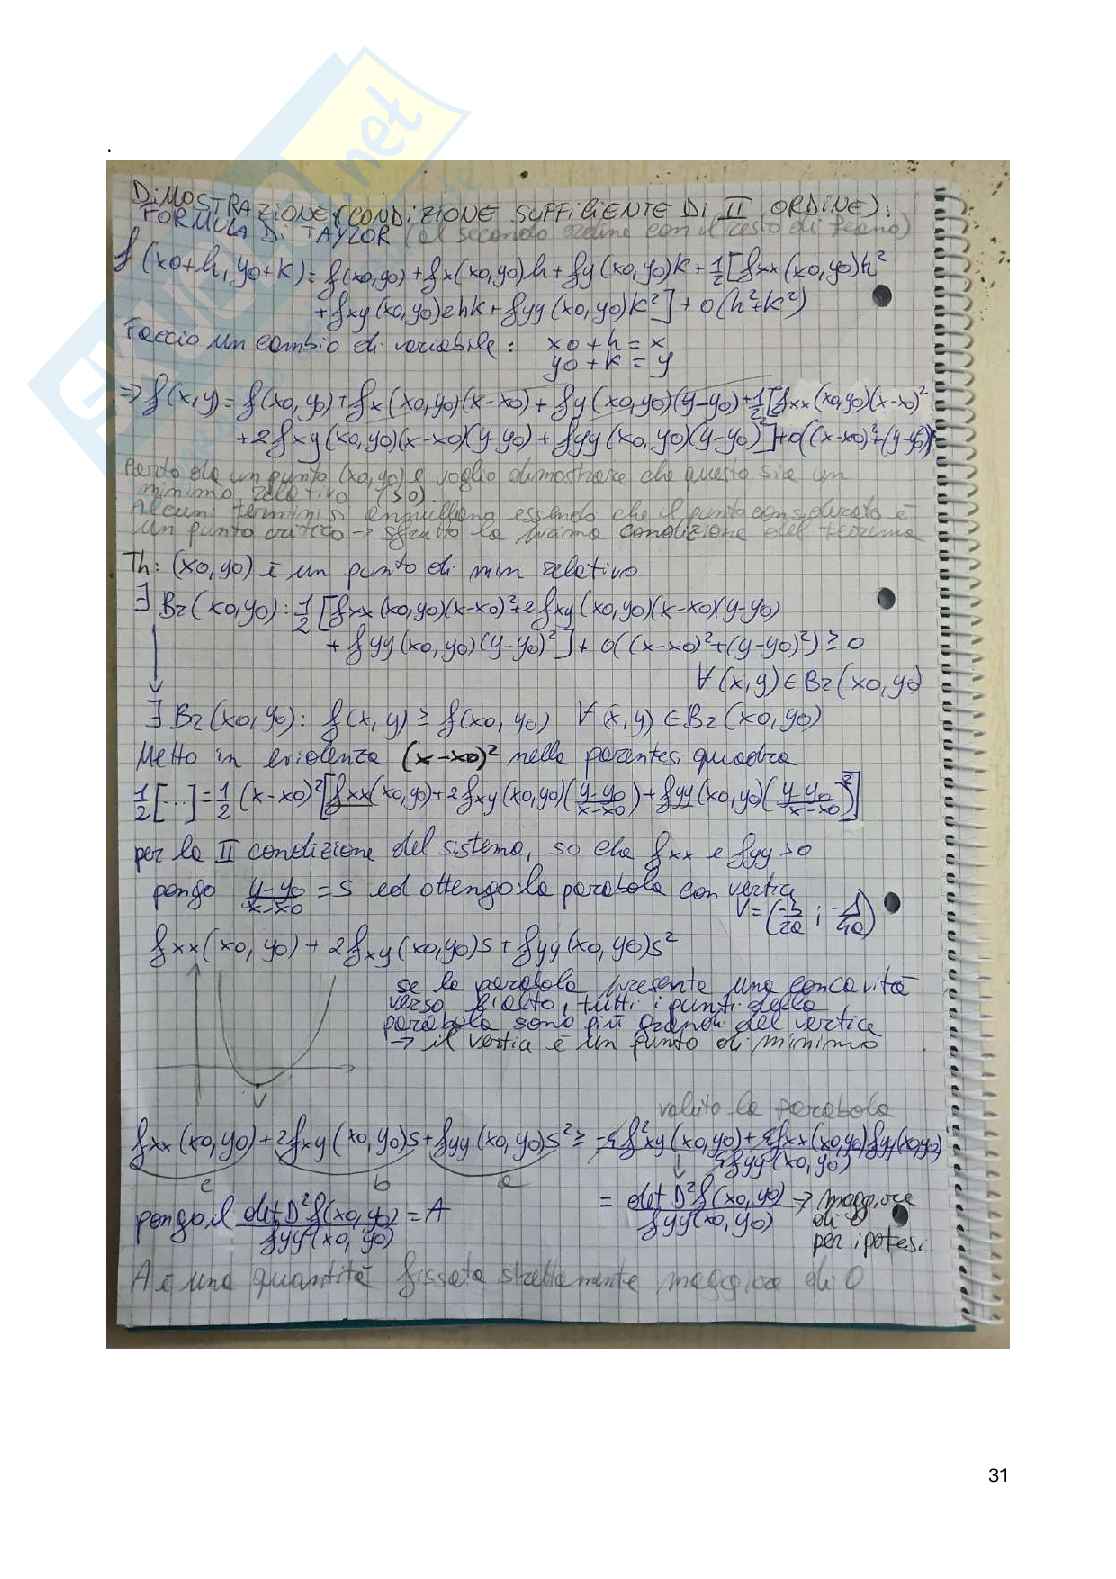 .
DIMOSTRAZIONE (CONDIZIONE SUFFICIENTE DI II ORDINE):
FORMULA DI TAYLOR (al secondo ordine con il resto di Peano)
f(x0+h, y0+k) = f(x0,y0) + fx(x0,y0)h + fy(x0,y0)k + 1/2[fxx(x0,y0)h²
+ fxy(x0,y0)2hk + fyy(x0,y0)k²] + o(h²+k²)
Faccio un cambio di variabile: x0+h = x
y0+k = y
⇒ f(x,y) = f(x0,y0) + fx(x0,y0)(x-x0) + fy(x0,y0)(y-y0) + 1/2[fxx(x0,y0)(x-x0)²
+ 2fxy(x0,y0)(x-x0)(y-y0) + fyy(x0,y0)(y-y0)²] + o((x-x0)²+(y-y0)²)
Parto da un punto (x0,y0) e voglio dimostrare che questo sia un
minimo relativo (>0)
Alcuni termini si annullano essendo che il punto considerato è
un punto critico → sfrutto la prima condizione del teorema
Th: (x0,y0) è un punto di min relativo
∃ Br(x0,y0): 1/2[fxx(x0,y0)(x-x0)²+2fxy(x0,y0)(x-x0)(y-y0)
+ fyy(x0,y0)(y-y0)²] + o((x-x0)²+(y-y0)²) ≥ 0
∀(x,y) ∈ Br(x0,y0)
∃ Br(x0,y0): f(x,y) ≥ f(x0,y0) ∀(x,y) ∈ Br(x0,y0)
Metto in evidenza (x-x0)² nella parentesi quadra
1/2[...] = 1/2(x-x0)²[fxx(x0,y0)+2fxy(x0,y0)(y-y0/x-x0)+fyy(x0,y0)(y-y0/x-x0)²]
per la II condizione del sistema, so che fxx e fyy>0
pongo y-y0/x-x0 = s ed ottengo la parabola con vertice
V=(-b/2a ; -Δ/4a)
fxx(x0,y0) + 2fxy(x0,y0)s + fyy(x0,y0)s²
se la parabola presenta una concavità
verso l'alto, tutti i punti della
parabola sono più grandi del vertice
→ il vertice è un punto di minimo
V
valuto la parabola
fxx(x0,y0) + 2fxy(x0,y0)s + fyy(x0,y0)s² ≥ -4f²xy(x0,y0) + 4fxx(x0,y0)fyy(x0,y0)/4fyy(x0,y0)
c b a
= det D²f(x0,y0)/fyy(x0,y0) → maggiore
di 0
per ipotesi
pongo il det D²f(x0,y0)/fyy(x0,y0) = A
A è una quantità fissata strettamente maggiore di 0
31